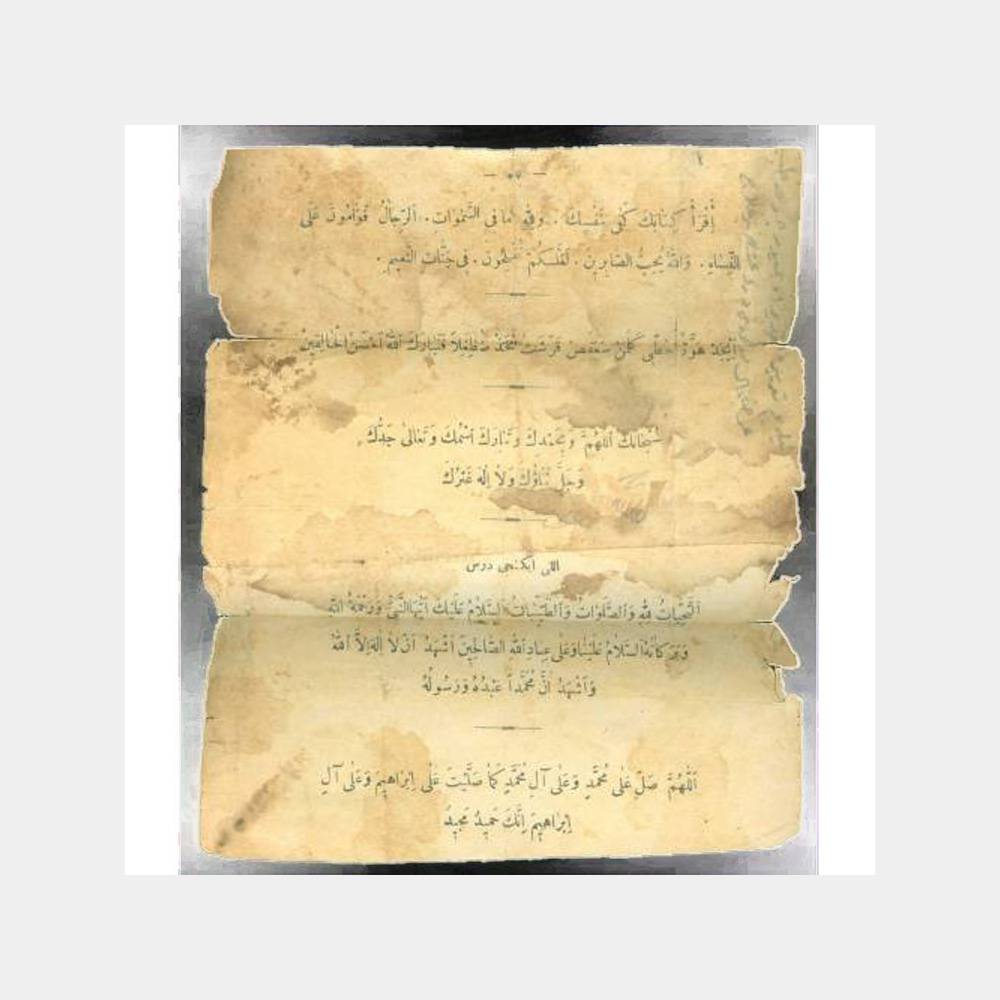 إِقْرَأْ كِتَابَكَ كَفٰى بِنَفْسِكَ . وَفِيهِ مَا فِى السَّمٰوَاتِ . اَلرِّجَالُ قَوَّامُونَ عَلَى
النِّسَاءِ . وَاللّٰهُ يُحِبُّ الصَّابِرِينَ . لَعَلَّكُمْ تُفْلِحُونَ . فِى جَنَّاتِ النَّعِيمِ .
اَبْجَدْ هَوَّزْ حُطِّى كَلَمَنْ سَعْفَصْ قَرَشَتْ ثَخَذْ ضَظِغْلاً فَتَبَارَكَ اللّٰهُ اَحْسَنُ الْخَالِقِينَ
سُبْحَانَكَ اَللّٰهُمَّ وَبِحَمْدِكَ وَتَبَارَكَ اسْمُكَ وَتَعَالٰى جَدُّكَ
وَجَلَّ ثَنَاؤُكَ وَلَا اِلٰهَ غَيْرُكَ
اللى ايكنجى درس
اَلتَّحِيَّاتُ لِلّٰهِ وَالصَّلَوَاتُ وَالطَّيِّبَاتُ اَلسَّلَامُ عَلَيْكَ اَيُّهَا النَّبِىُّ وَرَحْمَةُ اللّٰهِ
وَبَرَكَاتُهُ اَلسَّلَامُ عَلَيْنَا وَعَلٰى عِبَادِ اللّٰهِ الصَّالِحِينَ اَشْهَدُ اَنْ لَا اِلٰهَ اِلَّا اللّٰهُ
وَاَشْهَدُ اَنَّ مُحَمَّداً عَبْدُهُ وَرَسُولُهُ
اَللّٰهُمَّ صَلِّ عَلٰى مُحَمَّدٍ وَعَلٰى آلِ مُحَمَّدٍ كَمَا صَلَّيْتَ عَلٰى اِبْرَاهِيمَ وَعَلٰى آلِ
اِبْرَاهِيمَ اِنَّكَ حَمِيدٌ مَجِيدٌ